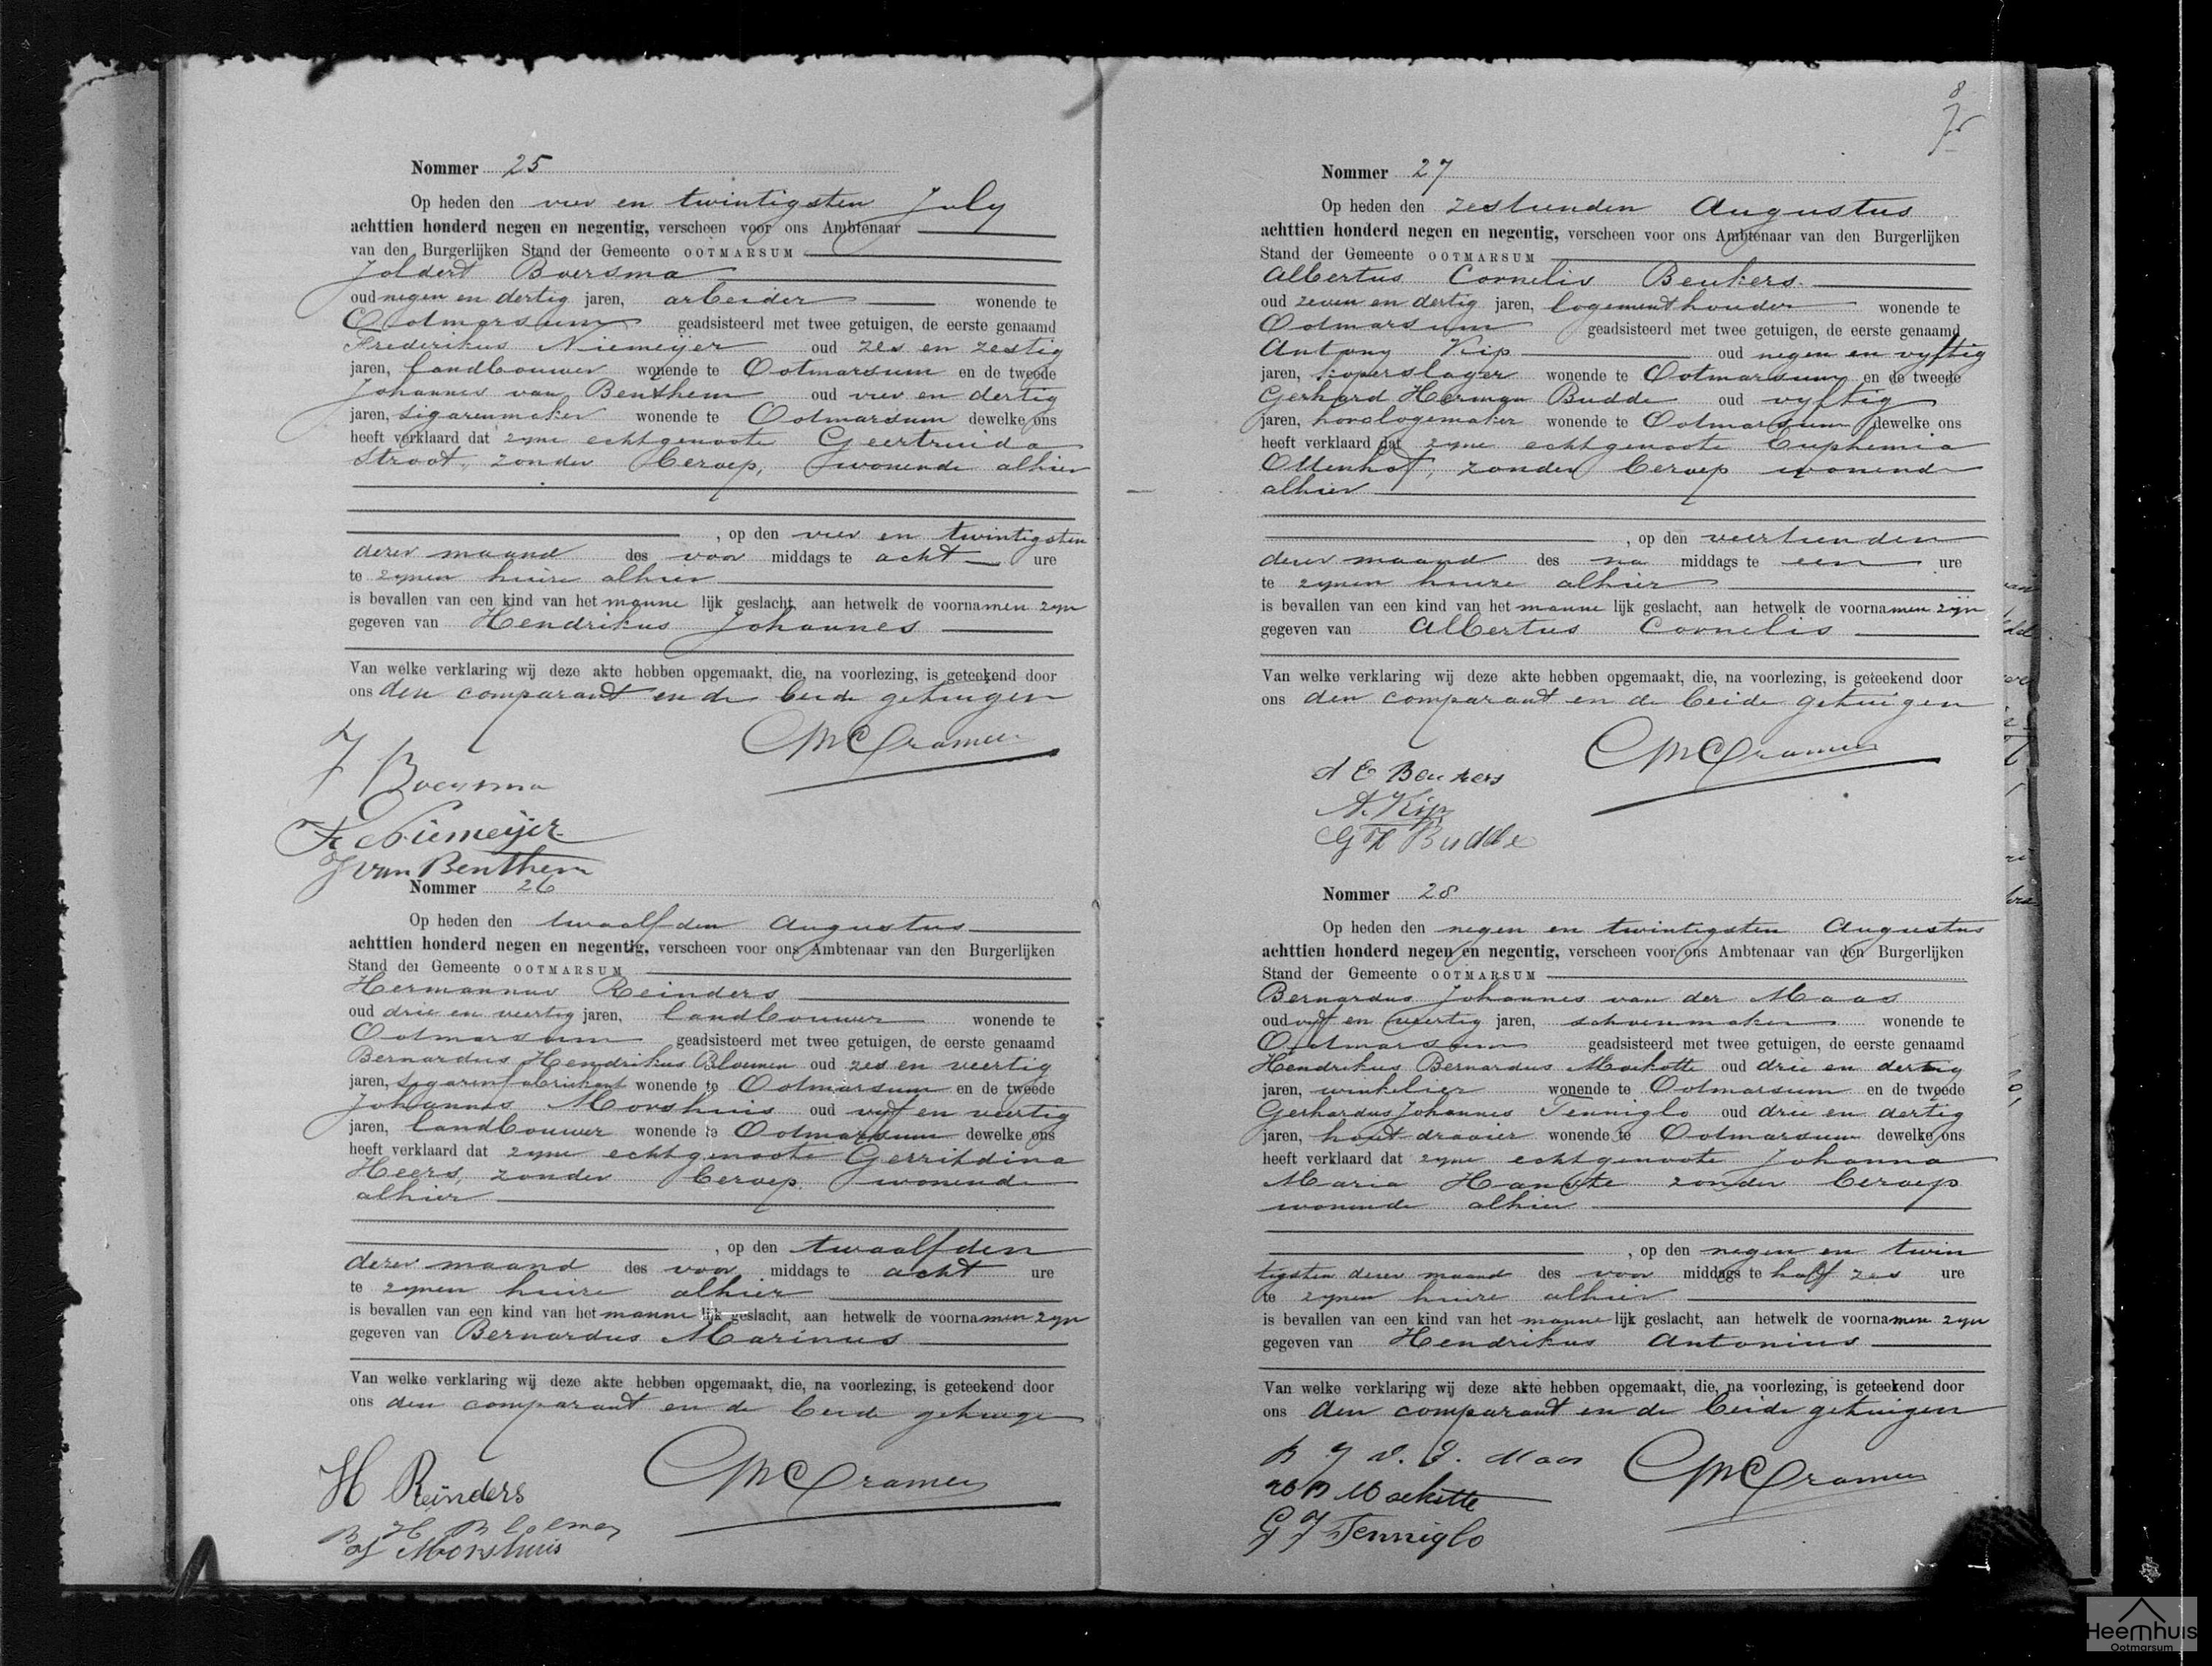 Nommer 25
Op heden den vier en twintigsten July
achttien honderd negen en negentig, verscheen voor ons Ambtenaar
van den Burgerlijken Stand der Gemeente OOTMARSUM
Joldert Boersma
oud negen en dertig jaren, arbeider wonende te
Ootmarsum geadsisteerd met twee getuigen, de eerste genaamd
Frederikus Niemeijer oud zes en zestig
jaren, landbouwer wonende te Ootmarsum en de tweede
Johannes van Benthem oud vier en dertig
jaren, sigarenmaker wonende te Ootmarsum dewelke ons
heeft verklaard dat zyne echtgenoote Geertruida
Stroot, zonder beroep, wonende alhier
, op den vier en twintigsten
dezer maand des voor middags te acht ure
te zynen huize alhier
is bevallen van een kind van het manne lijk geslacht, aan hetwelk de voornamen zyn
gegeven van Hendrikus Johannes
Van welke verklaring wij deze akte hebben opgemaakt, die, na voorlezing, is geteekend door
ons den comparant en de beide getuigen
J Boersma
CMCramer
Fr Niemeijer
J van Benthem
Nommer 26
Op heden den twaalfden Augustus
achttien honderd negen en negentig, verscheen voor ons Ambtenaar van den Burgerlijken
Stand der Gemeente OOTMARSUM
Hermannus Reinders
oud drie en veertig jaren, landbouwer wonende te
Ootmarsum geadsisteerd met twee getuigen, de eerste genaamd
Bernardus Hendrikus Bloemen oud zes en veertig
jaren, sigarenfabrikant wonende te Ootmarsum en de tweede
Johannes Morshuis oud vyf en veertig
jaren, landbouwer wonende te Ootmarsum dewelke ons
heeft verklaard dat zyne echtgenoote Gerritdina
Heers, zonder beroep wonende
alhier
, op den twaalfden
dezer maand des voor middags te acht ure
te zynen huize alhier
is bevallen van een kind van het manne lijk geslacht, aan hetwelk de voornamen zyn
gegeven van Bernardus Marinus
Van welke verklaring wij deze akte hebben opgemaakt, die, na voorlezing, is geteekend door
ons den comparant en de beide getuigen
H Reinders
CMCramer
B H Bloemen
Morshuis
8
Nommer 27
Op heden den zestienden Augustus
achttien honderd negen en negentig, verscheen voor ons Ambtenaar van den Burgerlijken
Stand der Gemeente OOTMARSUM
Albertus Cornelis Beukers
oud zeven en dertig jaren, logementhouder wonende te
Ootmarsum geadsisteerd met twee getuigen, de eerste genaamd
Antony Kip oud negen en vyftig
jaren, koperslager wonende te Ootmarsum en de tweede
Gerhard Herman Budde oud vyftig
jaren, horologemaker wonende te Ootmarsum dewelke ons
heeft verklaard dat zyne echtgenoote Euphemia
Ottenhof, zonder beroep wonende
alhier
, op den veertienden
dezer maand des na middags te een ure
te zynen huize alhier
is bevallen van een kind van het manne lijk geslacht, aan hetwelk de voornamen zijn
gegeven van Albertus Cornelis
Van welke verklaring wij deze akte hebben opgemaakt, die, na voorlezing, is geteekend door
ons den comparant en de beide getuigen
A C Beukers
CMCramer
A. Kip
G H Budde
Nommer 28
Op heden den negen en twintigsten Augustus
achttien honderd negen en negentig, verscheen voor ons Ambtenaar van den Burgerlijken
Stand der Gemeente OOTMARSUM
Bernardus Johannes van der Maas
oud vyf en veertig jaren, schoenmaker wonende te
Ootmarsum geadsisteerd met twee getuigen, de eerste genaamd
Hendrikus Bernardus Moekotte oud drie en dertig
jaren, winkelier wonende te Ootmarsum en de tweede
Gerhardus Johannes Tenniglo oud drie en dertig
jaren, hout draaier wonende te Ootmarsum dewelke ons
heeft verklaard dat zyne echtgenoote Johanna
Maria zonder beroep
wonende alhier
, op den negen en twin
tigsten dezer maand des voor middags te half zes ure
te zynen huize alhier
is bevallen van een kind van het manne lijk geslacht, aan hetwelk de voornamen zyn
gegeven van Hendrikus Antonius
Van welke verklaring wij deze akte hebben opgemaakt, die, na voorlezing, is geteekend door
ons den comparant en de beide getuigen
B J v. d. Maas
CMCramer
H B Moekotte
G J Tenniglo
Heemhuis
Ootmarsum